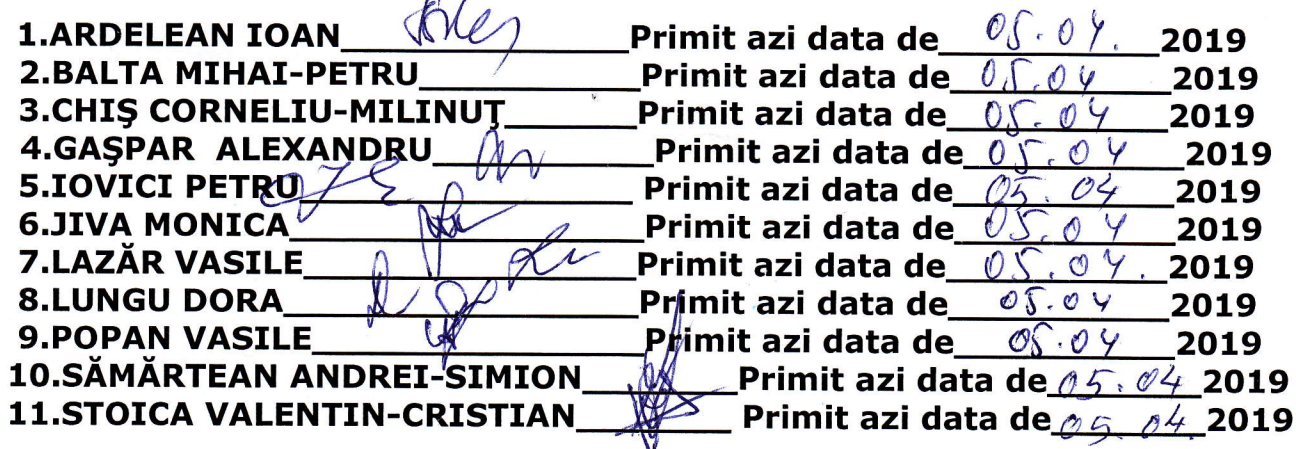 1.ARDELEAN IOAN Primit azi data de 05.04. 2019
2.BALTA MIHAI-PETRU Primit azi data de 05.04 2019
3.CHIŞ CORNELIU-MILINUŢ Primit azi data de 05.04 2019
4.GAŞPAR ALEXANDRU Primit azi data de 05.04 2019
5.IOVICI PETRU Primit azi data de 05.04 2019
6.JIVA MONICA Primit azi data de 05.04 2019
7.LAZĂR VASILE Primit azi data de 05.04. 2019
8.LUNGU DORA Primit azi data de 05.04 2019
9.POPAN VASILE Primit azi data de 05.04 2019
10.SĂMĂRTEAN ANDREI-SIMION Primit azi data de 05.04 2019
11.STOICA VALENTIN-CRISTIAN Primit azi data de 05.04. 2019